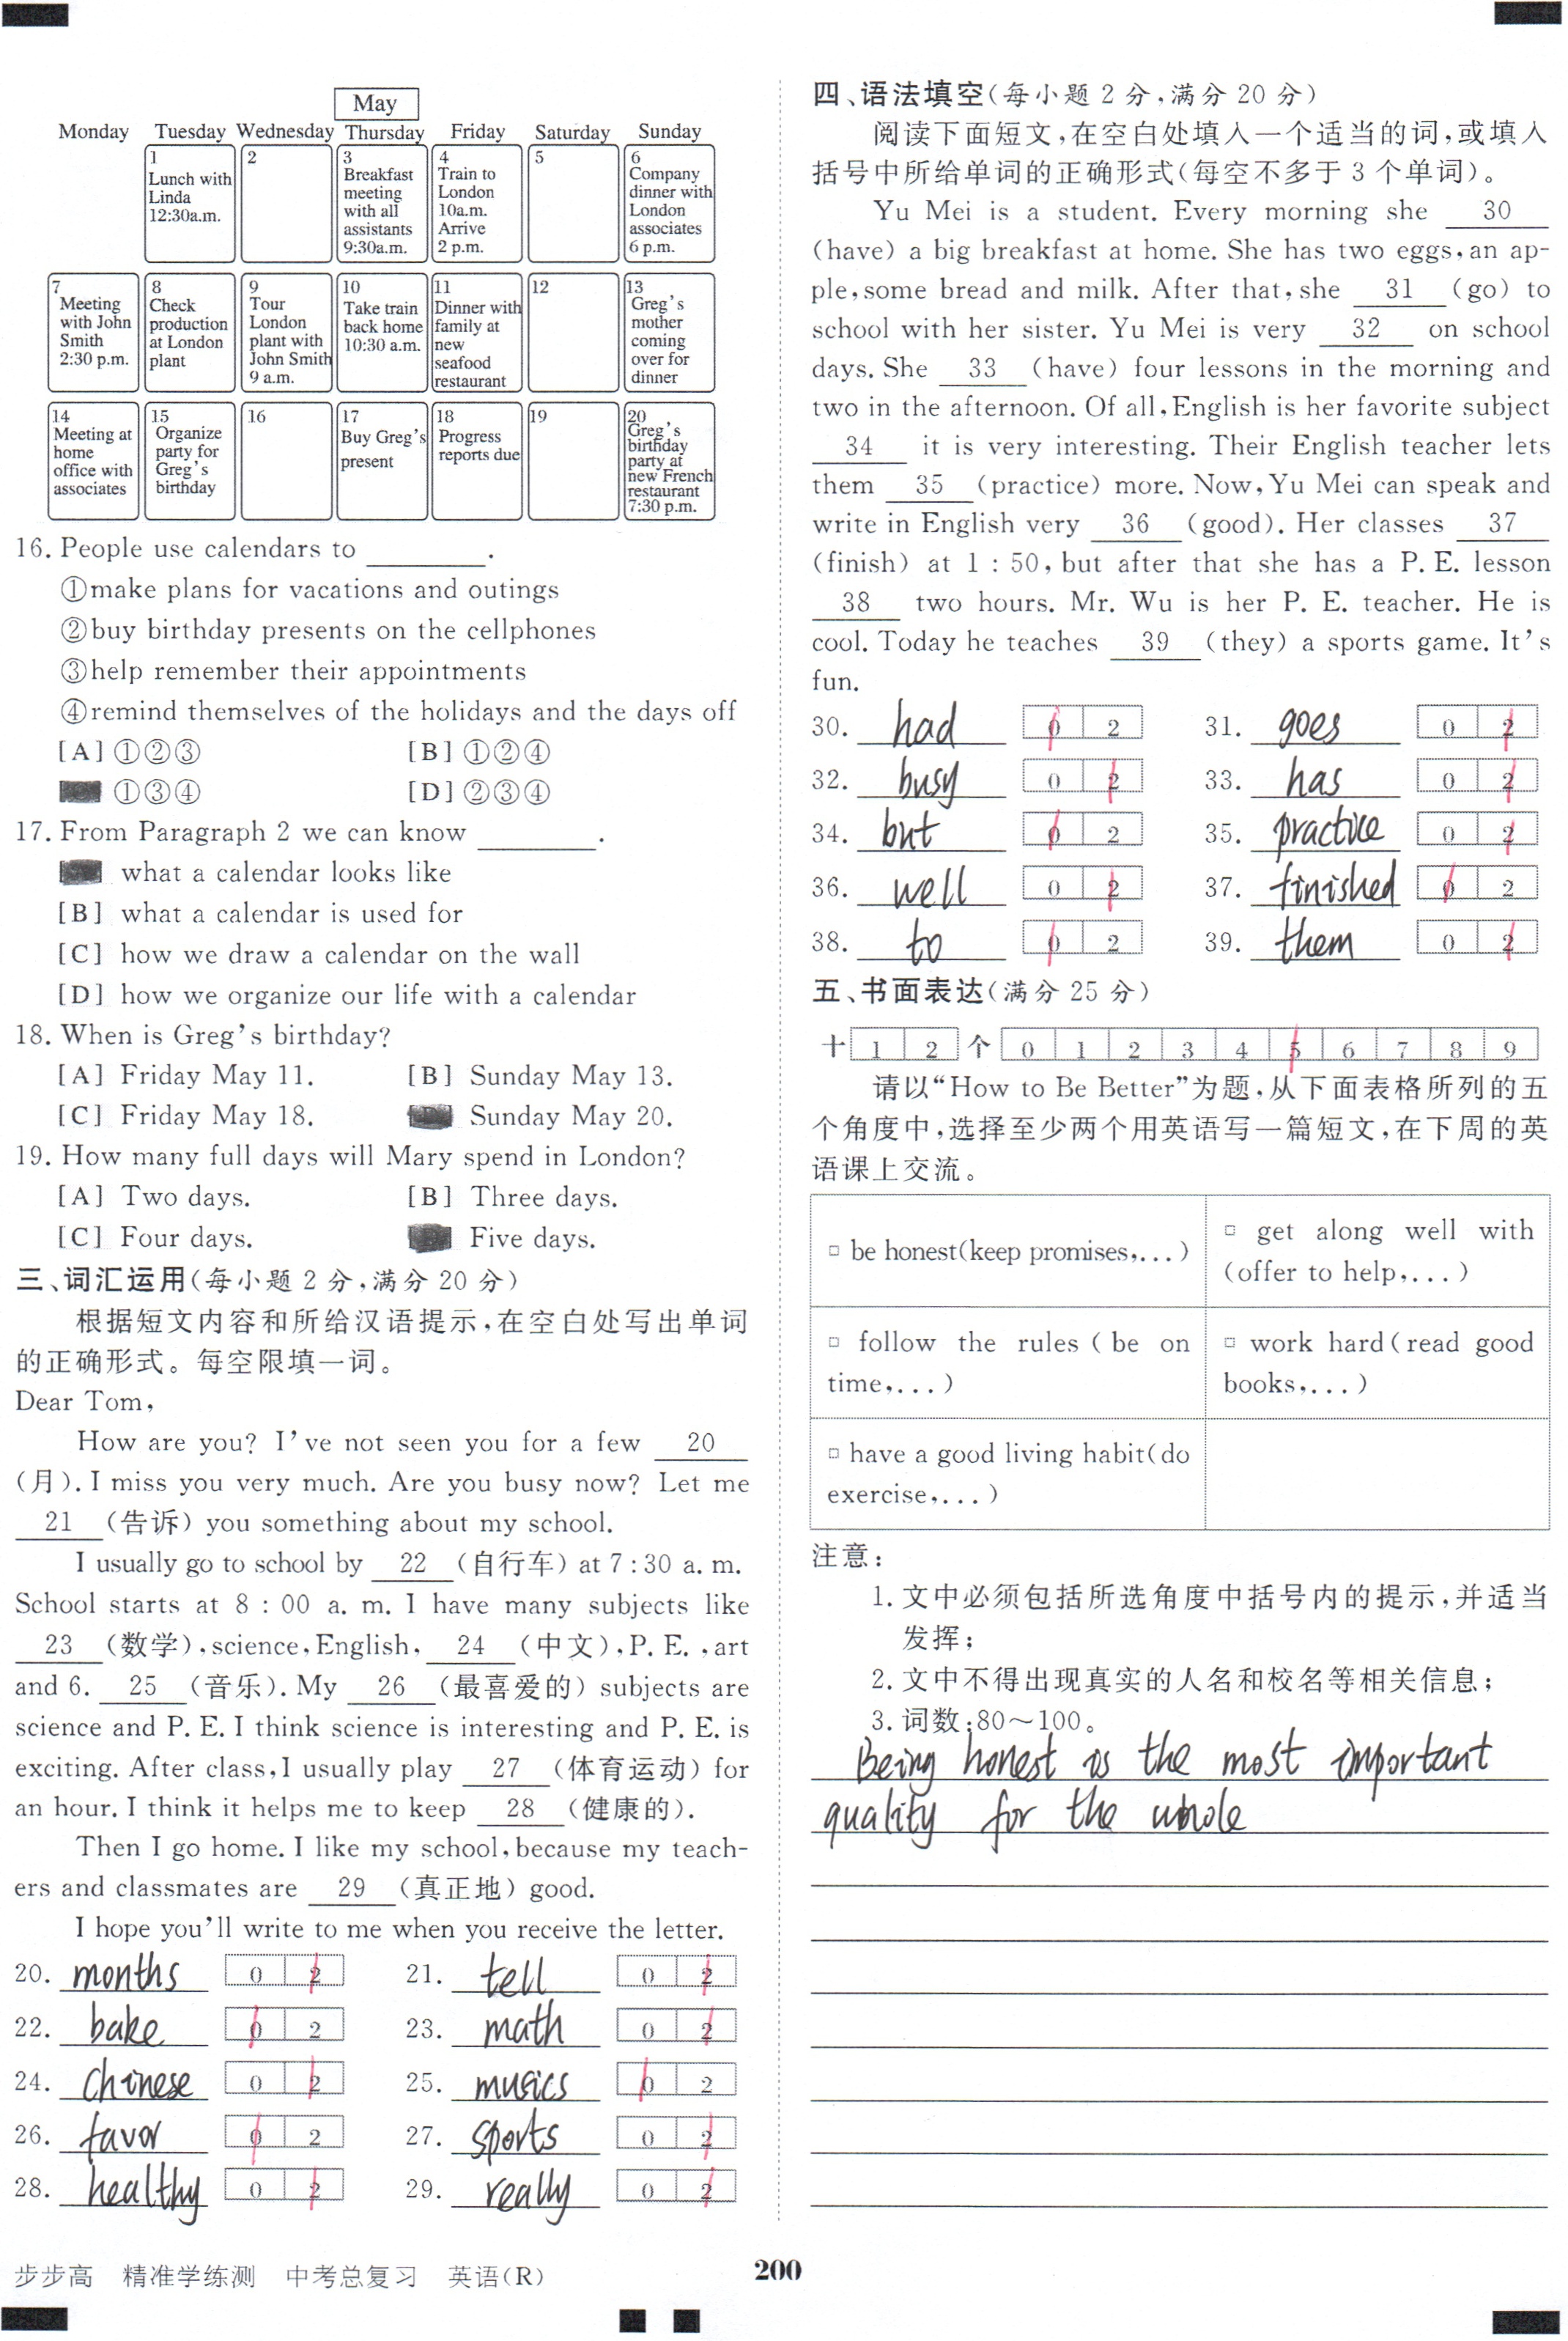 May
Monday Tuesday Wednesday Thursday Friday Saturday Sunday
1
Lunch with
Linda
12:30a.m.
2
3
Breakfast
meeting
with all
assistants
9:30a.m.
4
Train to
London
10a.m.
Arrive
2 p.m.
5
6
Company
dinner with
London
associates
6 p.m.
7
Meeting
with John
Smith
2:30 p.m.
8
Check
production
at London
plant
9
Tour
London
plant with
John Smith
9 a.m.
10
Take train
back home
10:30 a.m.
11
Dinner with
family at
new
seafood
restaurant
12
13
Greg's
mother
coming
over for
dinner
14
Meeting at
home
office with
associates
15
Organize
party for
Greg's
birthday
16
17
Buy Greg's
present
18
Progress
reports due
19
20
Greg's
birthday
party at
new French
restaurant
7:30 p.m.
16. People use calendars to ________.
①make plans for vacations and outings
②buy birthday presents on the cellphones
③help remember their appointments
④remind themselves of the holidays and the days off
[A] ①②③ [B] ①②④
①③④ [D] ②③④
17. From Paragraph 2 we can know ________.
what a calendar looks like
[B] what a calendar is used for
[C] how we draw a calendar on the wall
[D] how we organize our life with a calendar
18. When is Greg's birthday?
[A] Friday May 11. [B] Sunday May 13.
[C] Friday May 18. Sunday May 20.
19. How many full days will Mary spend in London?
[A] Two days. [B] Three days.
[C] Four days. Five days.
三、词汇运用(每小题 2 分,满分 20 分)
根据短文内容和所给汉语提示,在空白处写出单词
的正确形式。每空限填一词。
Dear Tom,
How are you? I've not seen you for a few 20
(月). I miss you very much. Are you busy now? Let me
21 (告诉) you something about my school.
I usually go to school by 22 (自行车) at 7:30 a. m.
School starts at 8 : 00 a. m. I have many subjects like
23 (数学), science, English, 24 (中文), P. E. , art
and 6. 25 (音乐). My 26 (最喜爱的) subjects are
science and P. E. I think science is interesting and P. E. is
exciting. After class, I usually play 27 (体育运动) for
an hour. I think it helps me to keep 28 (健康的).
Then I go home. I like my school, because my teach-
ers and classmates are 29 (真正地) good.
I hope you'll write to me when you receive the letter.
20. months 0 2 21. tell 0 2
22. bake 0 2 23. math 0 2
24. Chinese 0 2 25. musics 0 2
26. favor 0 2 27. sports 0 2
28. healthy 0 2 29. really 0 2
四、语法填空(每小题 2 分,满分 20 分)
阅读下面短文,在空白处填入一个适当的词,或填入
括号中所给单词的正确形式(每空不多于 3 个单词)。
Yu Mei is a student. Every morning she 30
(have) a big breakfast at home. She has two eggs, an ap-
ple, some bread and milk. After that, she 31 (go) to
school with her sister. Yu Mei is very 32 on school
days. She 33 (have) four lessons in the morning and
two in the afternoon. Of all, English is her favorite subject
34 it is very interesting. Their English teacher lets
them 35 (practice) more. Now, Yu Mei can speak and
write in English very 36 (good). Her classes 37
(finish) at 1 : 50, but after that she has a P. E. lesson
38 two hours. Mr. Wu is her P. E. teacher. He is
cool. Today he teaches 39 (they) a sports game. It's
fun.
30. had 0 2 31. goes 0 2
32. busy 0 2 33. has 0 2
34. but 0 2 35. practice 0 2
36. well 0 2 37. finished 0 2
38. to 0 2 39. them 0 2
五、书面表达(满分 25 分)
十 1 2 个 0 1 2 3 4 5 6 7 8 9
请以“How to Be Better”为题,从下面表格所列的五
个角度中,选择至少两个用英语写一篇短文,在下周的英
语课上交流。
□ be honest(keep promises,...)
□ get along well with
(offer to help,...)
□ follow the rules (be on
time,...)
□ work hard(read good
books,...)
□ have a good living habit(do
exercise,...)
注意:
1. 文中必须包括所选角度中括号内的提示,并适当
发挥;
2. 文中不得出现真实的人名和校名等相关信息;
3. 词数:80～100。
Being honest is the most important
quality for the whole
步步高 精准学练测 中考总复习 英语(R)
200